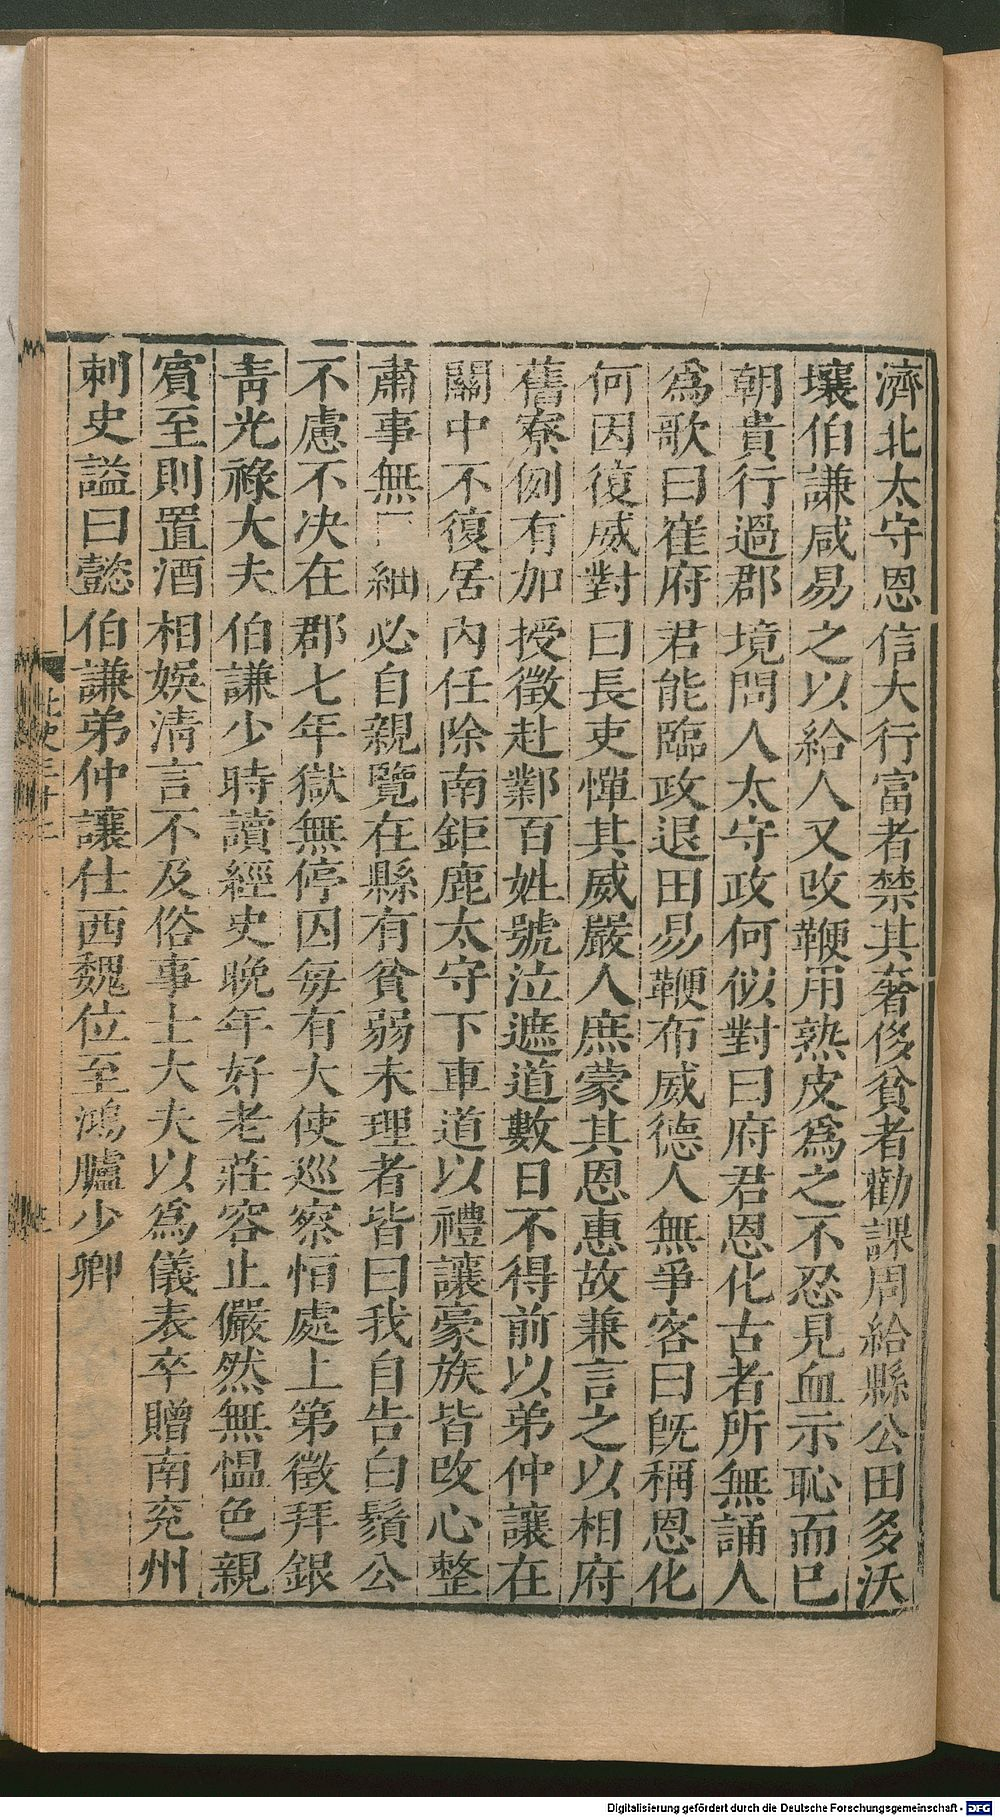 濟北太守恩信大行富者禁其奢侈貧者勸課周給縣公田多沃
壤伯謙咸易之以給人又改鞭用熟皮爲之不忍見血示恥而已
朝貴行過郡境問人太守政何似對曰府君恩化古者所無誦人
爲歌曰崔府君能臨政退田易鞭布威德人無爭客曰旣稱恩化
何因復威對曰長吏憚其威嚴人庶蒙其恩惠故兼言之以相府
舊寮例有加授徵赴鄴百姓號泣遮道數日不得前以弟仲讓在
關中不復居內任除南鉅鹿太守下車道以禮讓豪族皆改心整
肅事無 細必自親覽在縣有貧弱未理者皆曰我自告白鬚公
不慮不決在郡七年獄無停囚每有大使巡察恒處上第徵拜銀
靑光祿大夫伯謙少時讀經史晚年好老莊容止儼然無慍色親
賓至則置酒相娛淸言不及俗事士大夫以爲儀表卒贈南兗州
刺史謚曰懿伯謙弟仲讓仕西魏位至鴻臚少卿
北史三十二
Digitalisierung gefördert durch die Deutsche Forschungsgemeinschaft - DFG